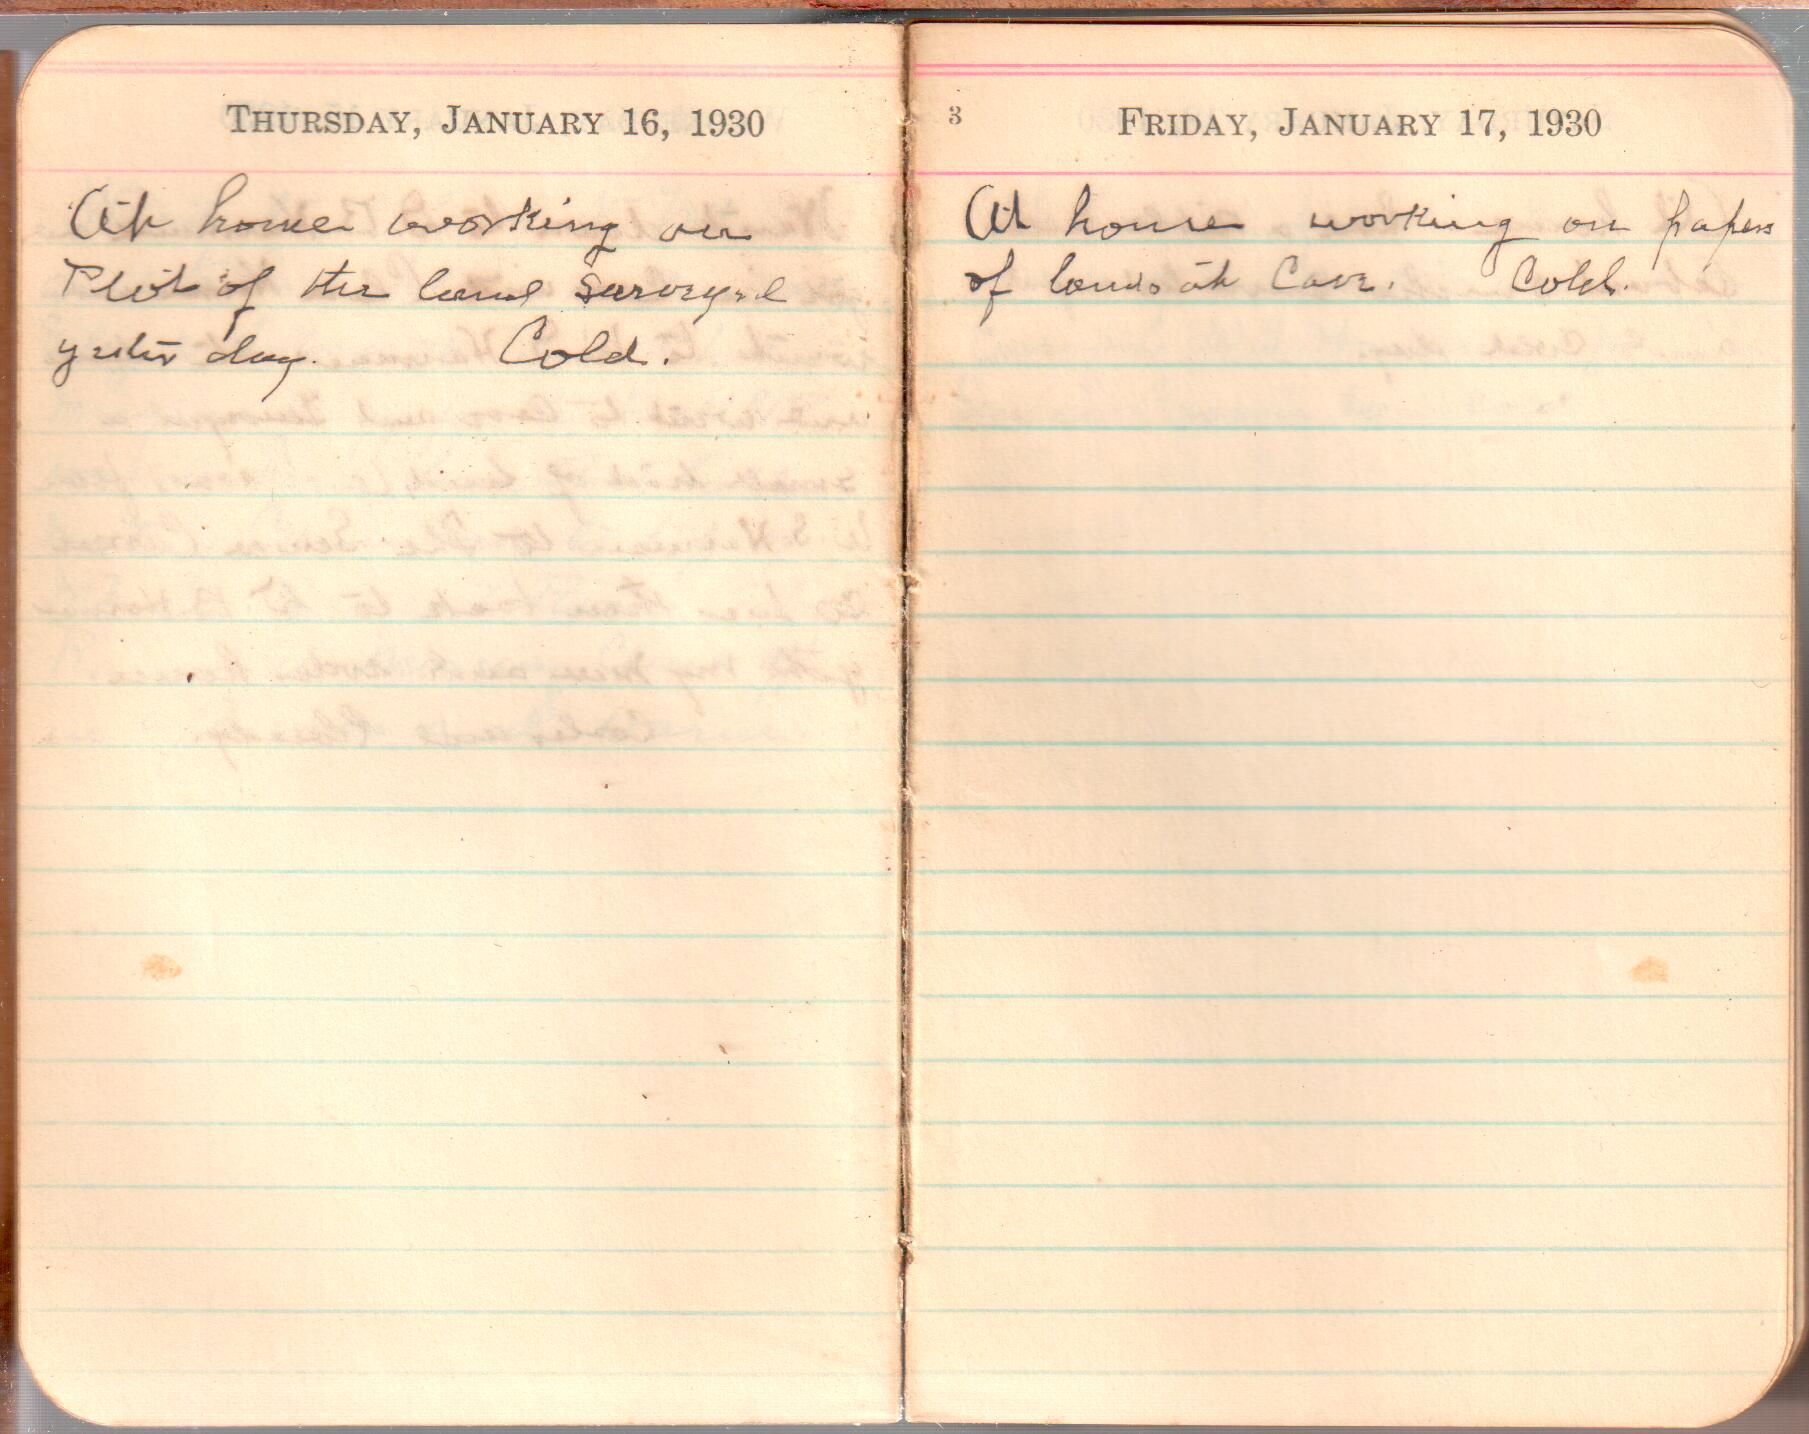 THURSDAY, JANUARY 16, 1930
At home working on
Plot of the land surveyed
yester day. Cold.
3
FRIDAY, JANUARY 17, 1930
At home working on papers
of lands at Cave. Cold.